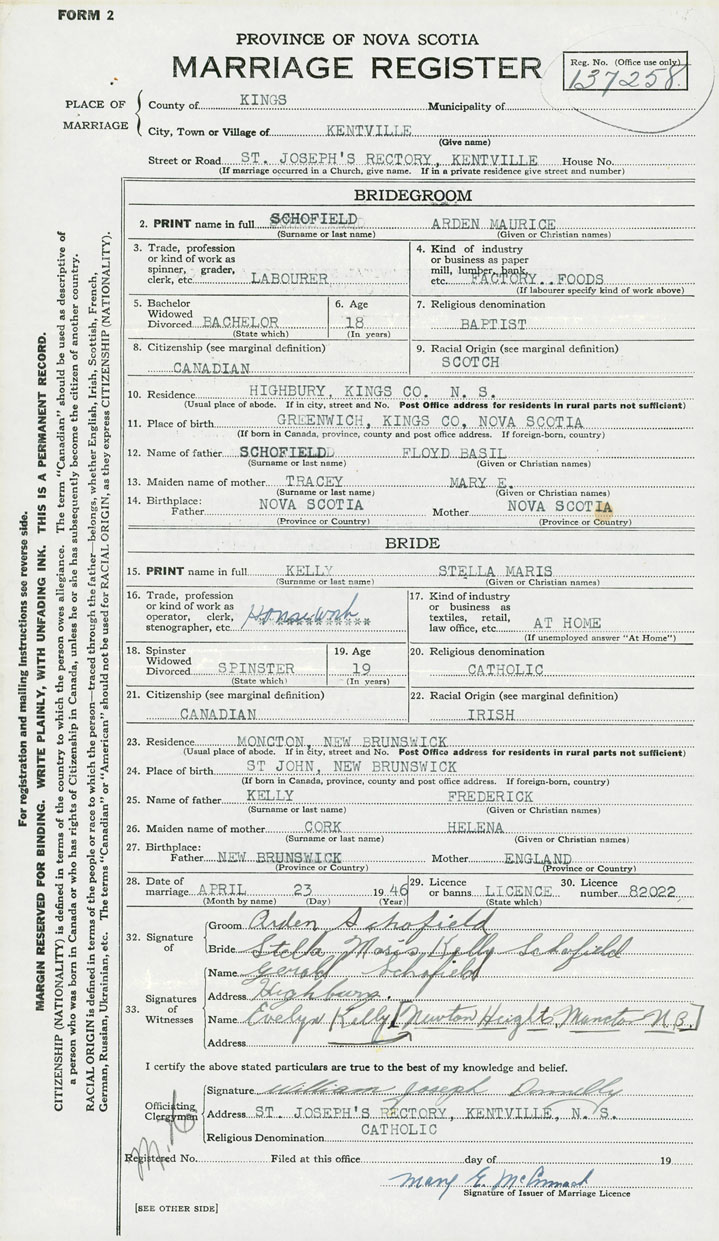 FORM 2
PROVINCE OF NOVA SCOTIA
MARRIAGE REGISTER
Reg. No. (Office use only)
137258
PLACE OF MARRIAGE
County of KINGS Municipality of
City, Town or Village of KENTVILLE
(Give name)
Street or Road ST. JOSEPH'S RECTORY, KENTVILLE House No.
(If marriage occurred in a Church, give name. If in a private residence give street and number)
BRIDEGROOM
2. PRINT name in full SCHOFIELD ARDEN MAURICE
(Surname or last name) (Given or Christian names)
3. Trade, profession or kind of work as spinner, grader, clerk, etc. LABOURER
4. Kind of industry or business as paper mill, lumber, bank, etc. FACTORY..FOODS
(If labourer specify kind of work above)
5. Bachelor Widowed Divorced BACHELOR
(State which)
6. Age 18
(In years)
7. Religious denomination
BAPTIST
8. Citizenship (see marginal definition)
CANADIAN
9. Racial Origin (see marginal definition)
SCOTCH
10. Residence HIGHBURY, KINGS CO. N. S.
(Usual place of abode. If in city, street and No. Post Office address for residents in rural parts not sufficient)
11. Place of birth GREENWICH, KINGS CO, NOVA SCOTIA
(If born in Canada, province, county and post office address. If foreign-born, country)
12. Name of father SCHOFIELD FLOYD BASIL
(Surname or last name) (Given or Christian names)
13. Maiden name of mother TRACEY MARY E.
(Surname or last name) (Given or Christian names)
14. Birthplace: Father NOVA SCOTIA Mother NOVA SCOTIA
(Province or Country) (Province or Country)
BRIDE
15. PRINT name in full KELLY STELLA MARIS
(Surname or last name) (Given or Christian names)
16. Trade, profession or kind of work as operator, clerk, stenographer, etc. Housework
17. Kind of industry or business as textiles, retail, law office, etc. AT HOME
(If unemployed answer "At Home")
18. Spinster Widowed Divorced SPINSTER
(State which)
19. Age 19
(In years)
20. Religious denomination
CATHOLIC
21. Citizenship (see marginal definition)
CANADIAN
22. Racial Origin (see marginal definition)
IRISH
23. Residence MONCTON, NEW BRUNSWICK
(Usual place of abode. If in city, street and No. Post Office address for residents in rural parts not sufficient)
24. Place of birth ST JOHN, NEW BRUNSWICK
(If born in Canada, province, county and post office address. If foreign-born, country)
25. Name of father KELLY FREDERICK
(Surname or last name) (Given or Christian names)
26. Maiden name of mother CORK HELENA
(Surname or last name) (Given or Christian names)
27. Birthplace: Father NEW BRUNSWICK Mother ENGLAND
(Province or Country) (Province or Country)
28. Date of marriage APRIL 23 1946
(Month by name) (Day) (Year)
29. Licence or banns LICENCE
(State which)
30. Licence number 82022
32. Signature of
Groom Arden Schofield
Bride Stella Maris Kelly Schofield
33. Signatures of Witnesses
Name Gerald Schofield
Address Highbury.
Name Evelyn Kelly [Newton Heights, Moncton N.B.]
Address
I certify the above stated particulars are true to the best of my knowledge and belief.
Officiating Clergyman
Signature William Joseph Donnelly
Address ST. JOSEPH'S RECTORY, KENTVILLE, N. S.
Religious Denomination CATHOLIC
Registered No. Filed at this office day of 19
Mary E. McCormack
Signature of Issuer of Marriage Licence
[SEE OTHER SIDE]
For registration and mailing instructions see reverse side.
MARGIN RESERVED FOR BINDING. WRITE PLAINLY, WITH UNFADING INK. THIS IS A PERMANENT RECORD.
CITIZENSHIP (NATIONALITY) is defined in terms of the country to which the person owes allegiance. The term "Canadian" should be used as descriptive of
a person who was born in Canada or who has rights of Citizenship in Canada, unless he or she has subsequently become the citizen of another country.
RACIAL ORIGIN is defined in terms of the people or race to which the person—traced through the father—belongs, whether English, Irish, Scottish, French,
German, Russian, Ukrainian, etc. The terms "Canadian" or "American" should not be used for RACIAL ORIGIN, as they express CITIZENSHIP (NATIONALITY).